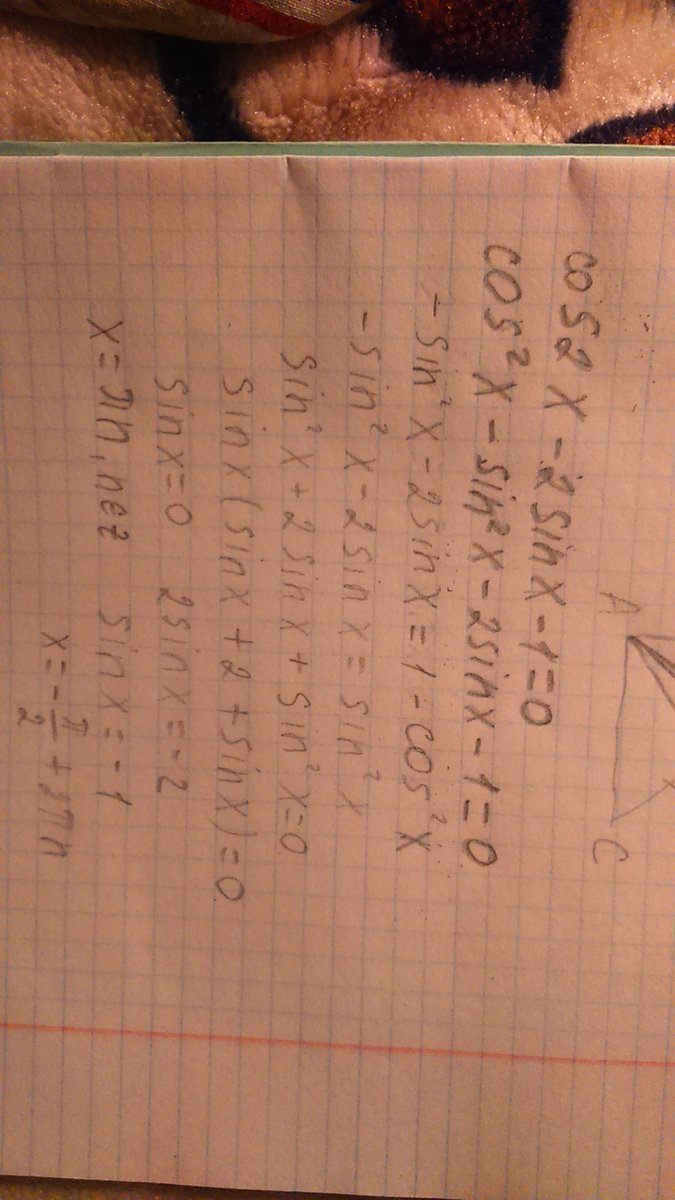 A
C
cos2x - 2sinx - 1 = 0
cos²x - sin²x - 2sinx - 1 = 0
-sin²x - 2sinx = 1 - cos²x
-sin²x - 2sinx = sin²x
sin²x + 2sinx + sin²x = 0
sinx(sinx + 2 + sinx) = 0
sinx = 0 2sinx = -2
x = πn, n∈z sinx = -1
x = -π/2 + 2πn